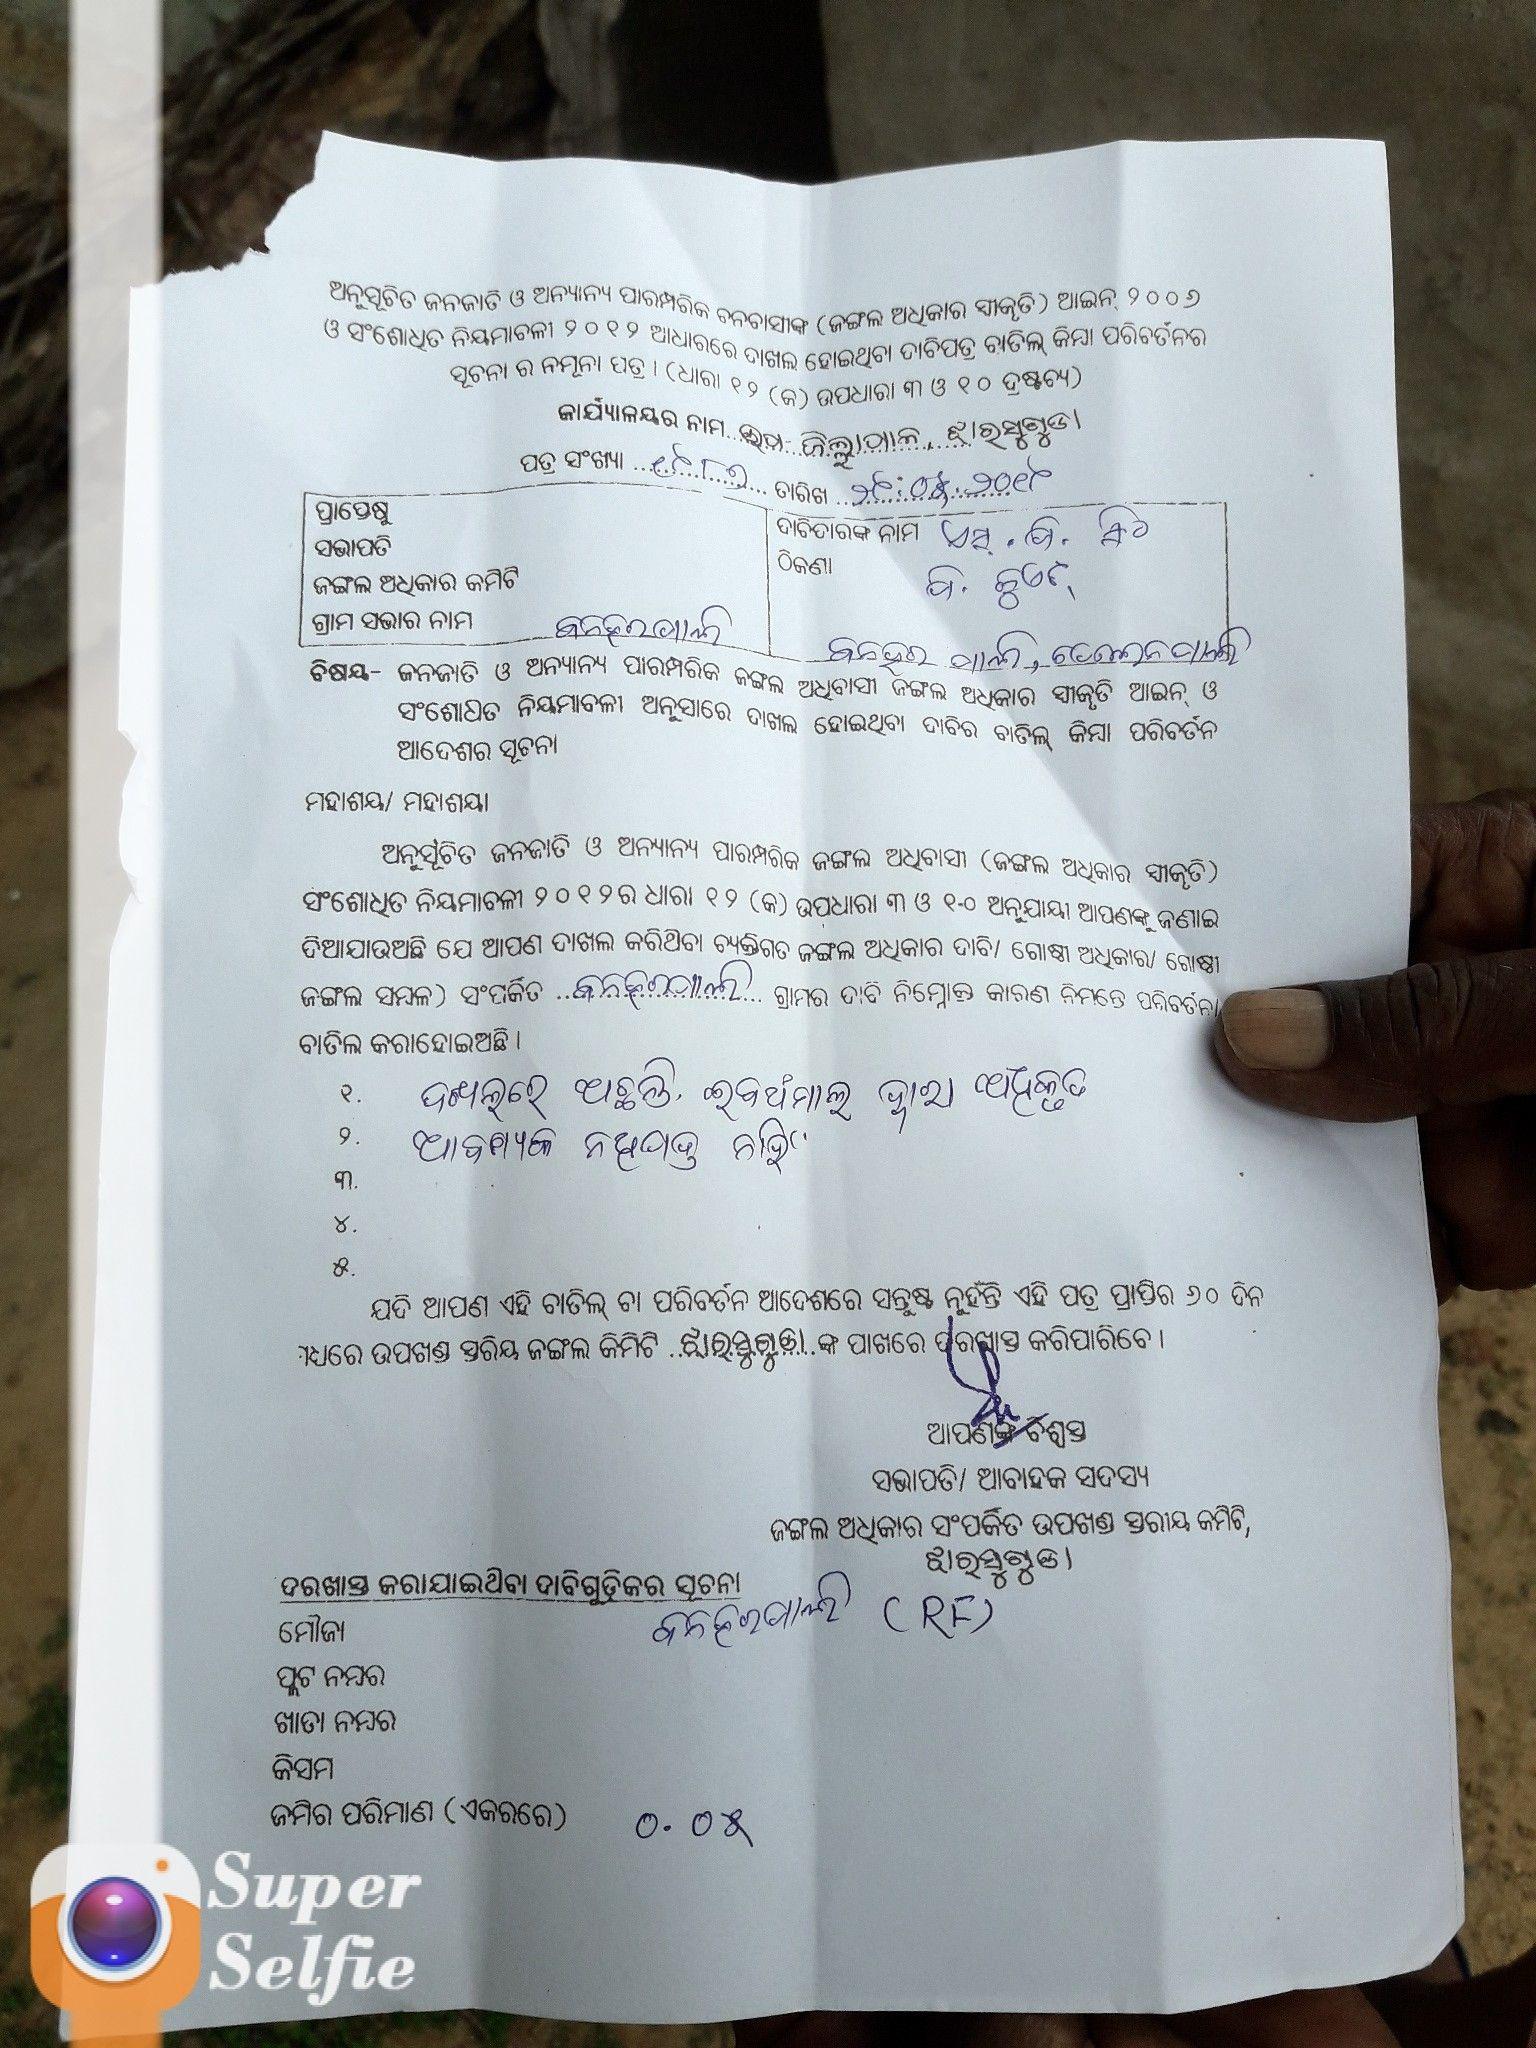 ଅନୁସୂଚିତ ଜନଜାତି ଓ ଅନ୍ୟାନ୍ୟ ପାରମ୍ପରିକ ବନବାସୀଙ୍କ (ଜଙ୍ଗଲ ଅଧିକାର ସ୍ୱୀକୃତି) ଆଇନ୍ ୨୦୦୬
ଓ ସଂଶୋଧିତ ନିୟମାବଳୀ ୨୦୧୨ ଆଧାରରେ ଦାଖଲ ହୋଇଥିବା ଦାବିପତ୍ର ବାତିଲ୍ କିମ୍ବା ପରିବର୍ତନର
ସୂଚନା ର ନମୂନା ପତ୍ର । (ଧାରା ୧୨ (କ) ଉପଧାରା ୩ ଓ ୧୦ ଦ୍ରଷ୍ଟବ୍ୟ)
କାର୍ଯ୍ୟାଳୟର ନାମ... ଉପ- ଜିଲ୍ଲାପାଳ, ଝାରସୁଗୁଡା
ପତ୍ର ସଂଖ୍ୟା ............... ତାରିଖ ...............
ପ୍ରାପ୍ତେଷୁ
ସଭାପତି
ଜଙ୍ଗଲ ଅଧିକାର କମିଟି
ଗ୍ରାମ ସଭାର ନାମ ବନହରପାଲି
ଦାବିଦାରଙ୍କ ନାମ
ଠିକଣା
ବନହର ପାଲି,
ବିଷୟ- ଜନଜାତି ଓ ଅନ୍ୟାନ୍ୟ ପାରମ୍ପରିକ ଜଙ୍ଗଲ ଅଧିବାସୀ ଜଙ୍ଗଲ ଅଧିକାର ସ୍ୱୀକୃତି ଆଇନ୍ ଓ
ସଂଶୋଧିତ ନିୟମାବଳୀ ଅନୁସାରେ ଦାଖଲ ହୋଇଥିବା ଦାବିର ବାତିଲ୍ କିମ୍ବା ପରିବର୍ତନ
ଆଦେଶର ସୂଚନା
ମହାଶୟ/ ମହାଶୟା
ଅନୁସୂଚିତ ଜନଜାତି ଓ ଅନ୍ୟାନ୍ୟ ପାରମ୍ପରିକ ଜଙ୍ଗଲ ଅଧିବାସୀ (ଜଙ୍ଗଲ ଅଧିକାର ସ୍ୱୀକୃତି)
ସଂଶୋଧିତ ନିୟମାବଳୀ ୨୦୧୨ର ଧାରା ୧୨ (କ) ଉପଧାରା ୩ ଓ ୧୦ ଅନୁଯାୟୀ ଆପଣଙ୍କୁ ଜଣାଇ
ଦିଆଯାଉଅଛି ଯେ ଆପଣ ଦାଖଲ କରିଥିବା ବ୍ୟକ୍ତିଗତ ଜଙ୍ଗଲ ଅଧିକାର ଦାବି/ ଗୋଷ୍ଠୀ ଅଧିକାର/ ଗୋଷ୍ଠୀ
ଜଙ୍ଗଲ ସମ୍ବଳ) ସଂପର୍କିତ ... ବନହରପାଲି ... ଗ୍ରାମର ଦାବି ନିମ୍ନୋକ୍ତ କାରଣ ନିମନ୍ତେ ପରିବର୍ତନ/
ବାତିଲ କରାହୋଇଅଛି ।
୧. ଦଖଲରେ ଅଛନ୍ତି, ଦ୍ୱାରା
୨. ଆବଶ୍ୟକ ନଥିପତ୍ର ନାହିଁ
୩.
୪.
୫.
ଯଦି ଆପଣ ଏହି ବାତିଲ୍ ବା ପରିବର୍ତନ ଆଦେଶରେ ସନ୍ତୁଷ୍ଟ ନୁହଁନ୍ତି ଏହି ପତ୍ର ପ୍ରାପ୍ତିର ୬୦ ଦିନ
ମଧ୍ୟରେ ଉପଖଣ୍ଡ ସ୍ତରିୟ ଜଙ୍ଗଲ କିମିଟି ... ଝାରସୁଗୁଡା ...ଙ୍କ ପାଖରେ ଦରଖାସ୍ତ କରିପାରିବେ ।
ଆପଣଙ୍କ ବିଶ୍ୱସ୍ତ
ସଭାପତି/ ଆବାହକ ସଦସ୍ୟ
ଜଙ୍ଗଲ ଅଧିକାର ସଂପର୍କିତ ଉପଖଣ୍ଡ ସ୍ତରୀୟ କମିଟି,
ଝାରସୁଗୁଡା ।
ଦରଖାସ୍ତ କରାଯାଇଥିବା ଦାବିଗୁଡ଼ିକର ସୂଚନା
ମୌଜା ବନହରପାଲି (RF)
ପ୍ଲଟ ନମ୍ବର
ଖାତା ନମ୍ବର
କିସମ
ଜମିର ପରିମାଣ (ଏକରରେ) ୦.୦୫
Super
Selfie